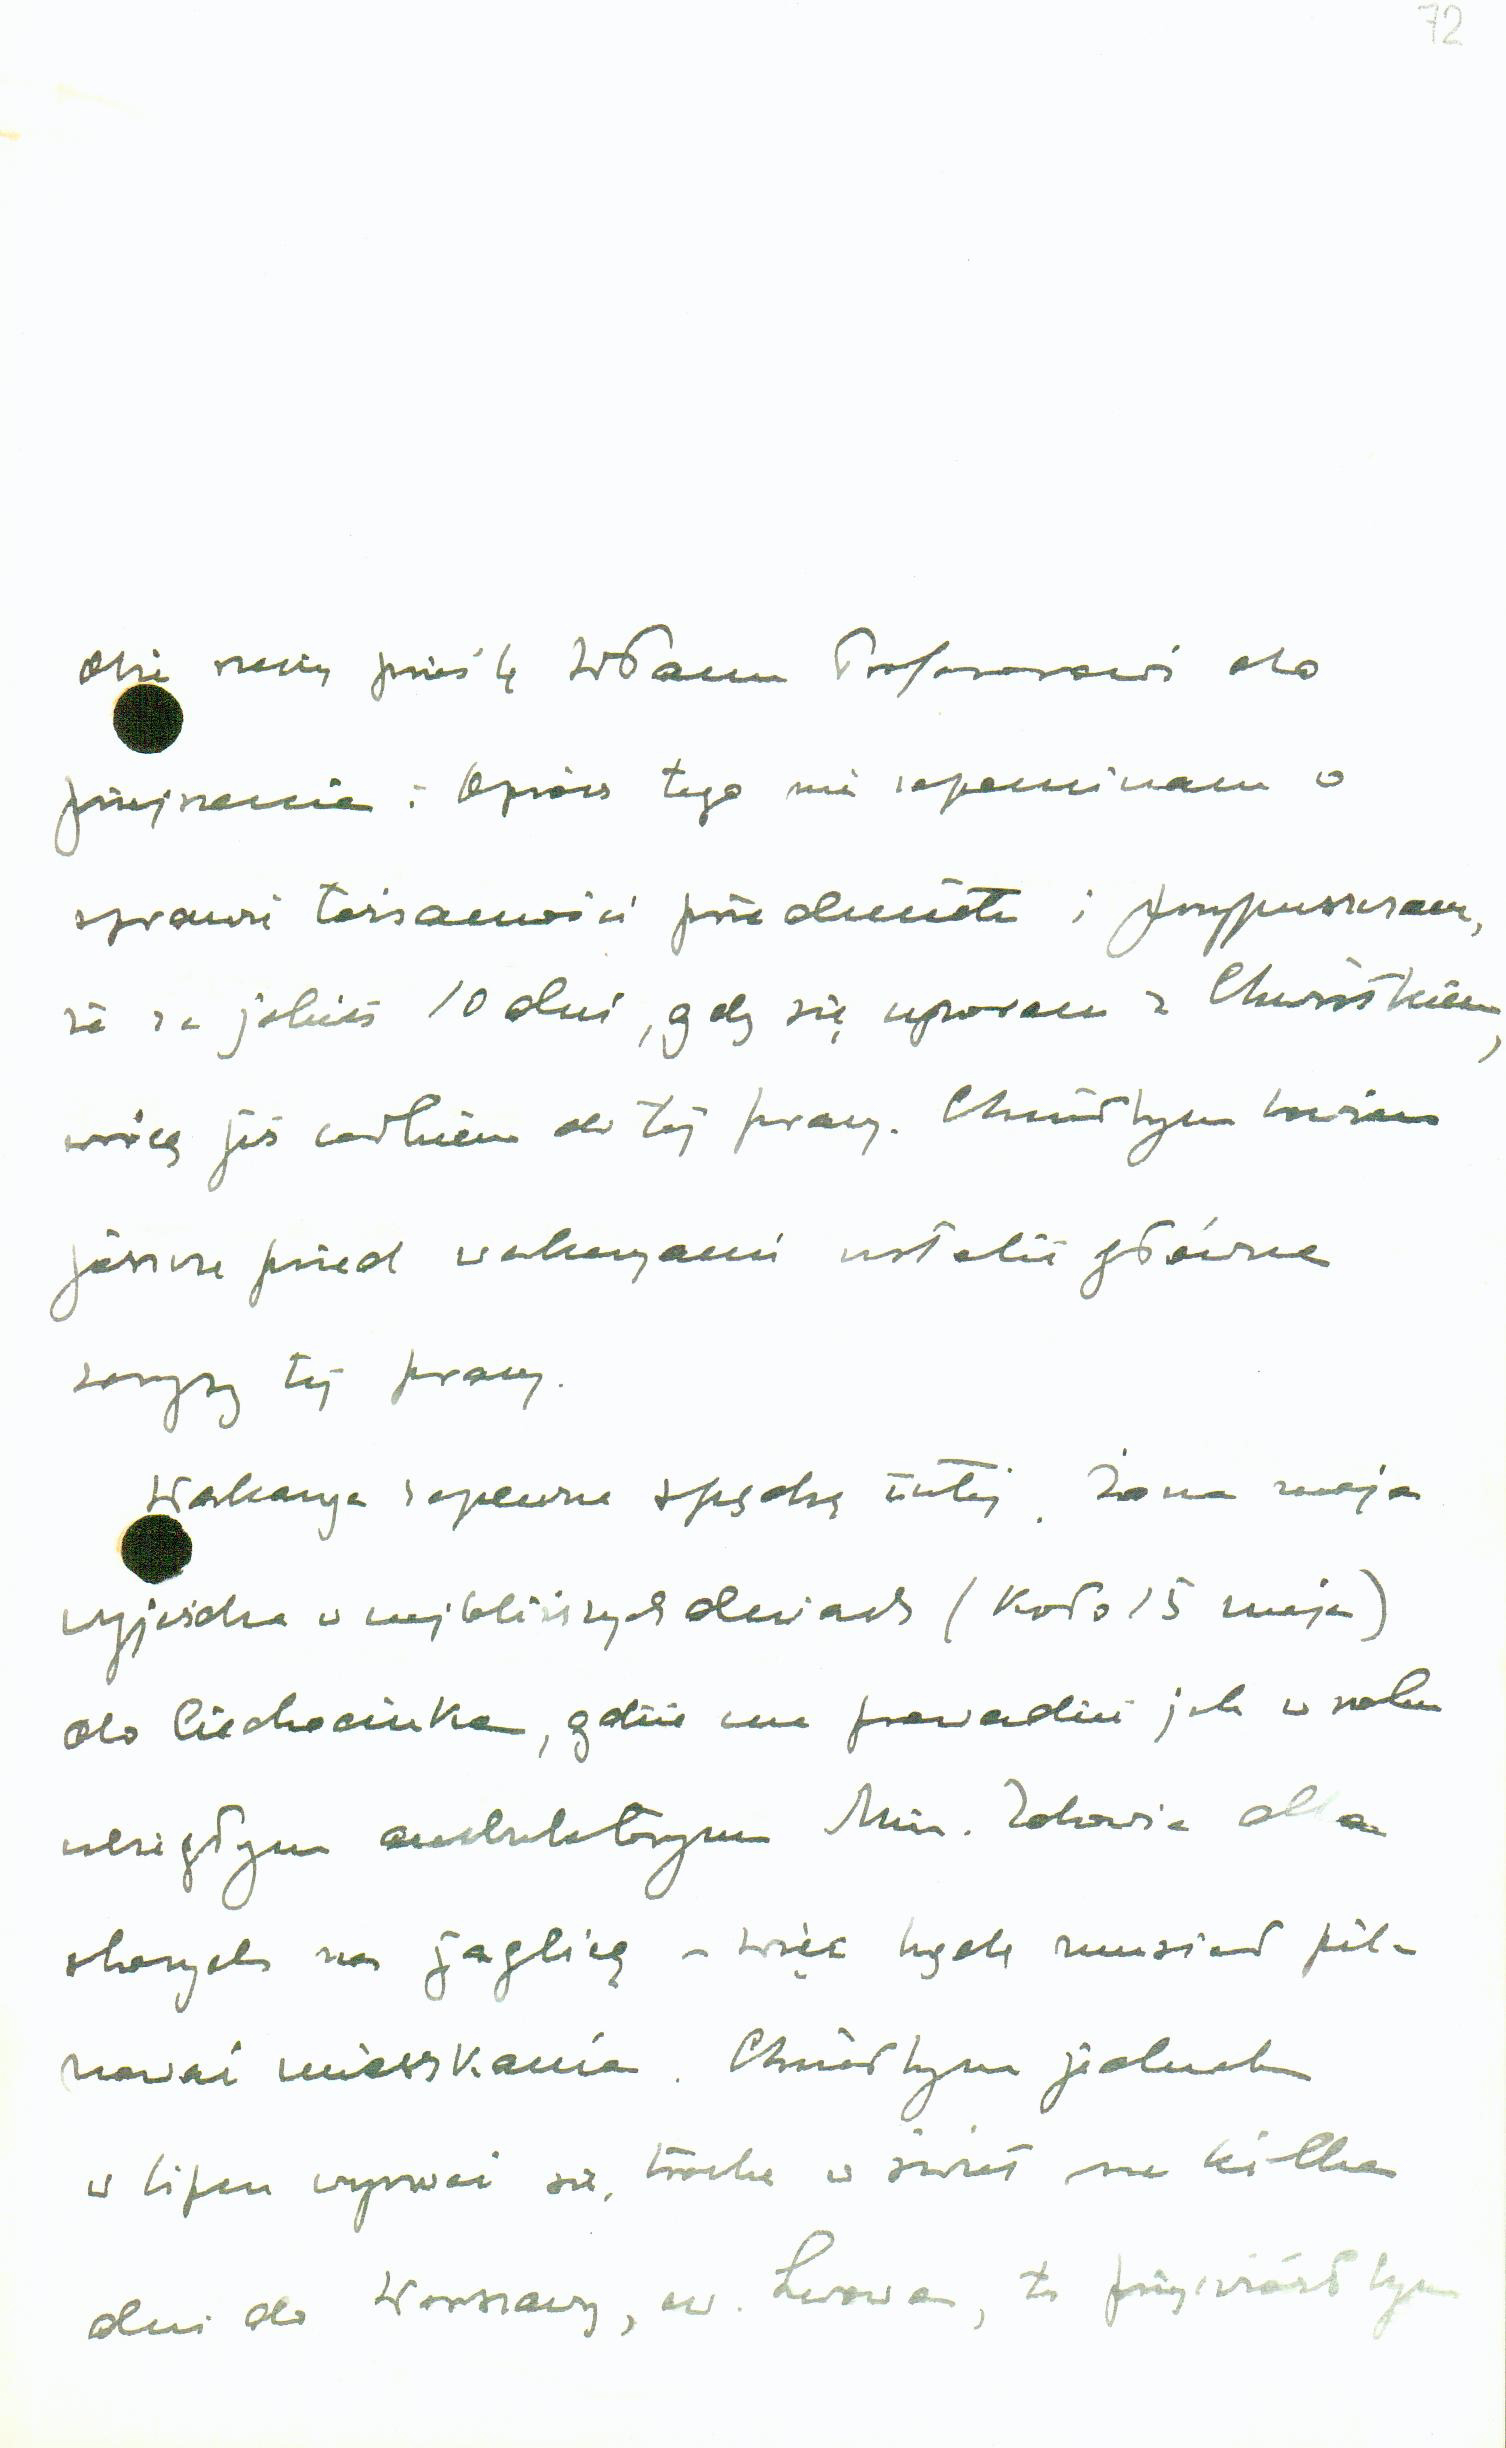 72
obie rzeczy prześlę WPanu Profesorowi do
przejrzenia. Oprócz tego nie zapominam o
sprawie tożsamości przedmiotu i przypuszczam,
że za jakieś 10 dni, gdy się uporam z Chwistkiem,
wrócę już całkiem do tej pracy. Chciałbym bowiem
jeszcze przed wakacyami ustalić główne
zarysy tej pracy.
Wakacye zapewne spędzę tutaj. Żona moja
wyjeżdża w najbliższych dniach (koło 15 maja)
do Ciechocinka, gdzie ma prowadzić jak w roku
ubiegłym ambulatoryum Min. Zdrowia dla
chorych na jaglicę – więc będę musiał pil-
nować mieszkania. Chciałbym jednak
w lipcu wyrwać się trochę w świat na kilka
dni do Warszawy, ew. Lwowa, to przywiózłbym